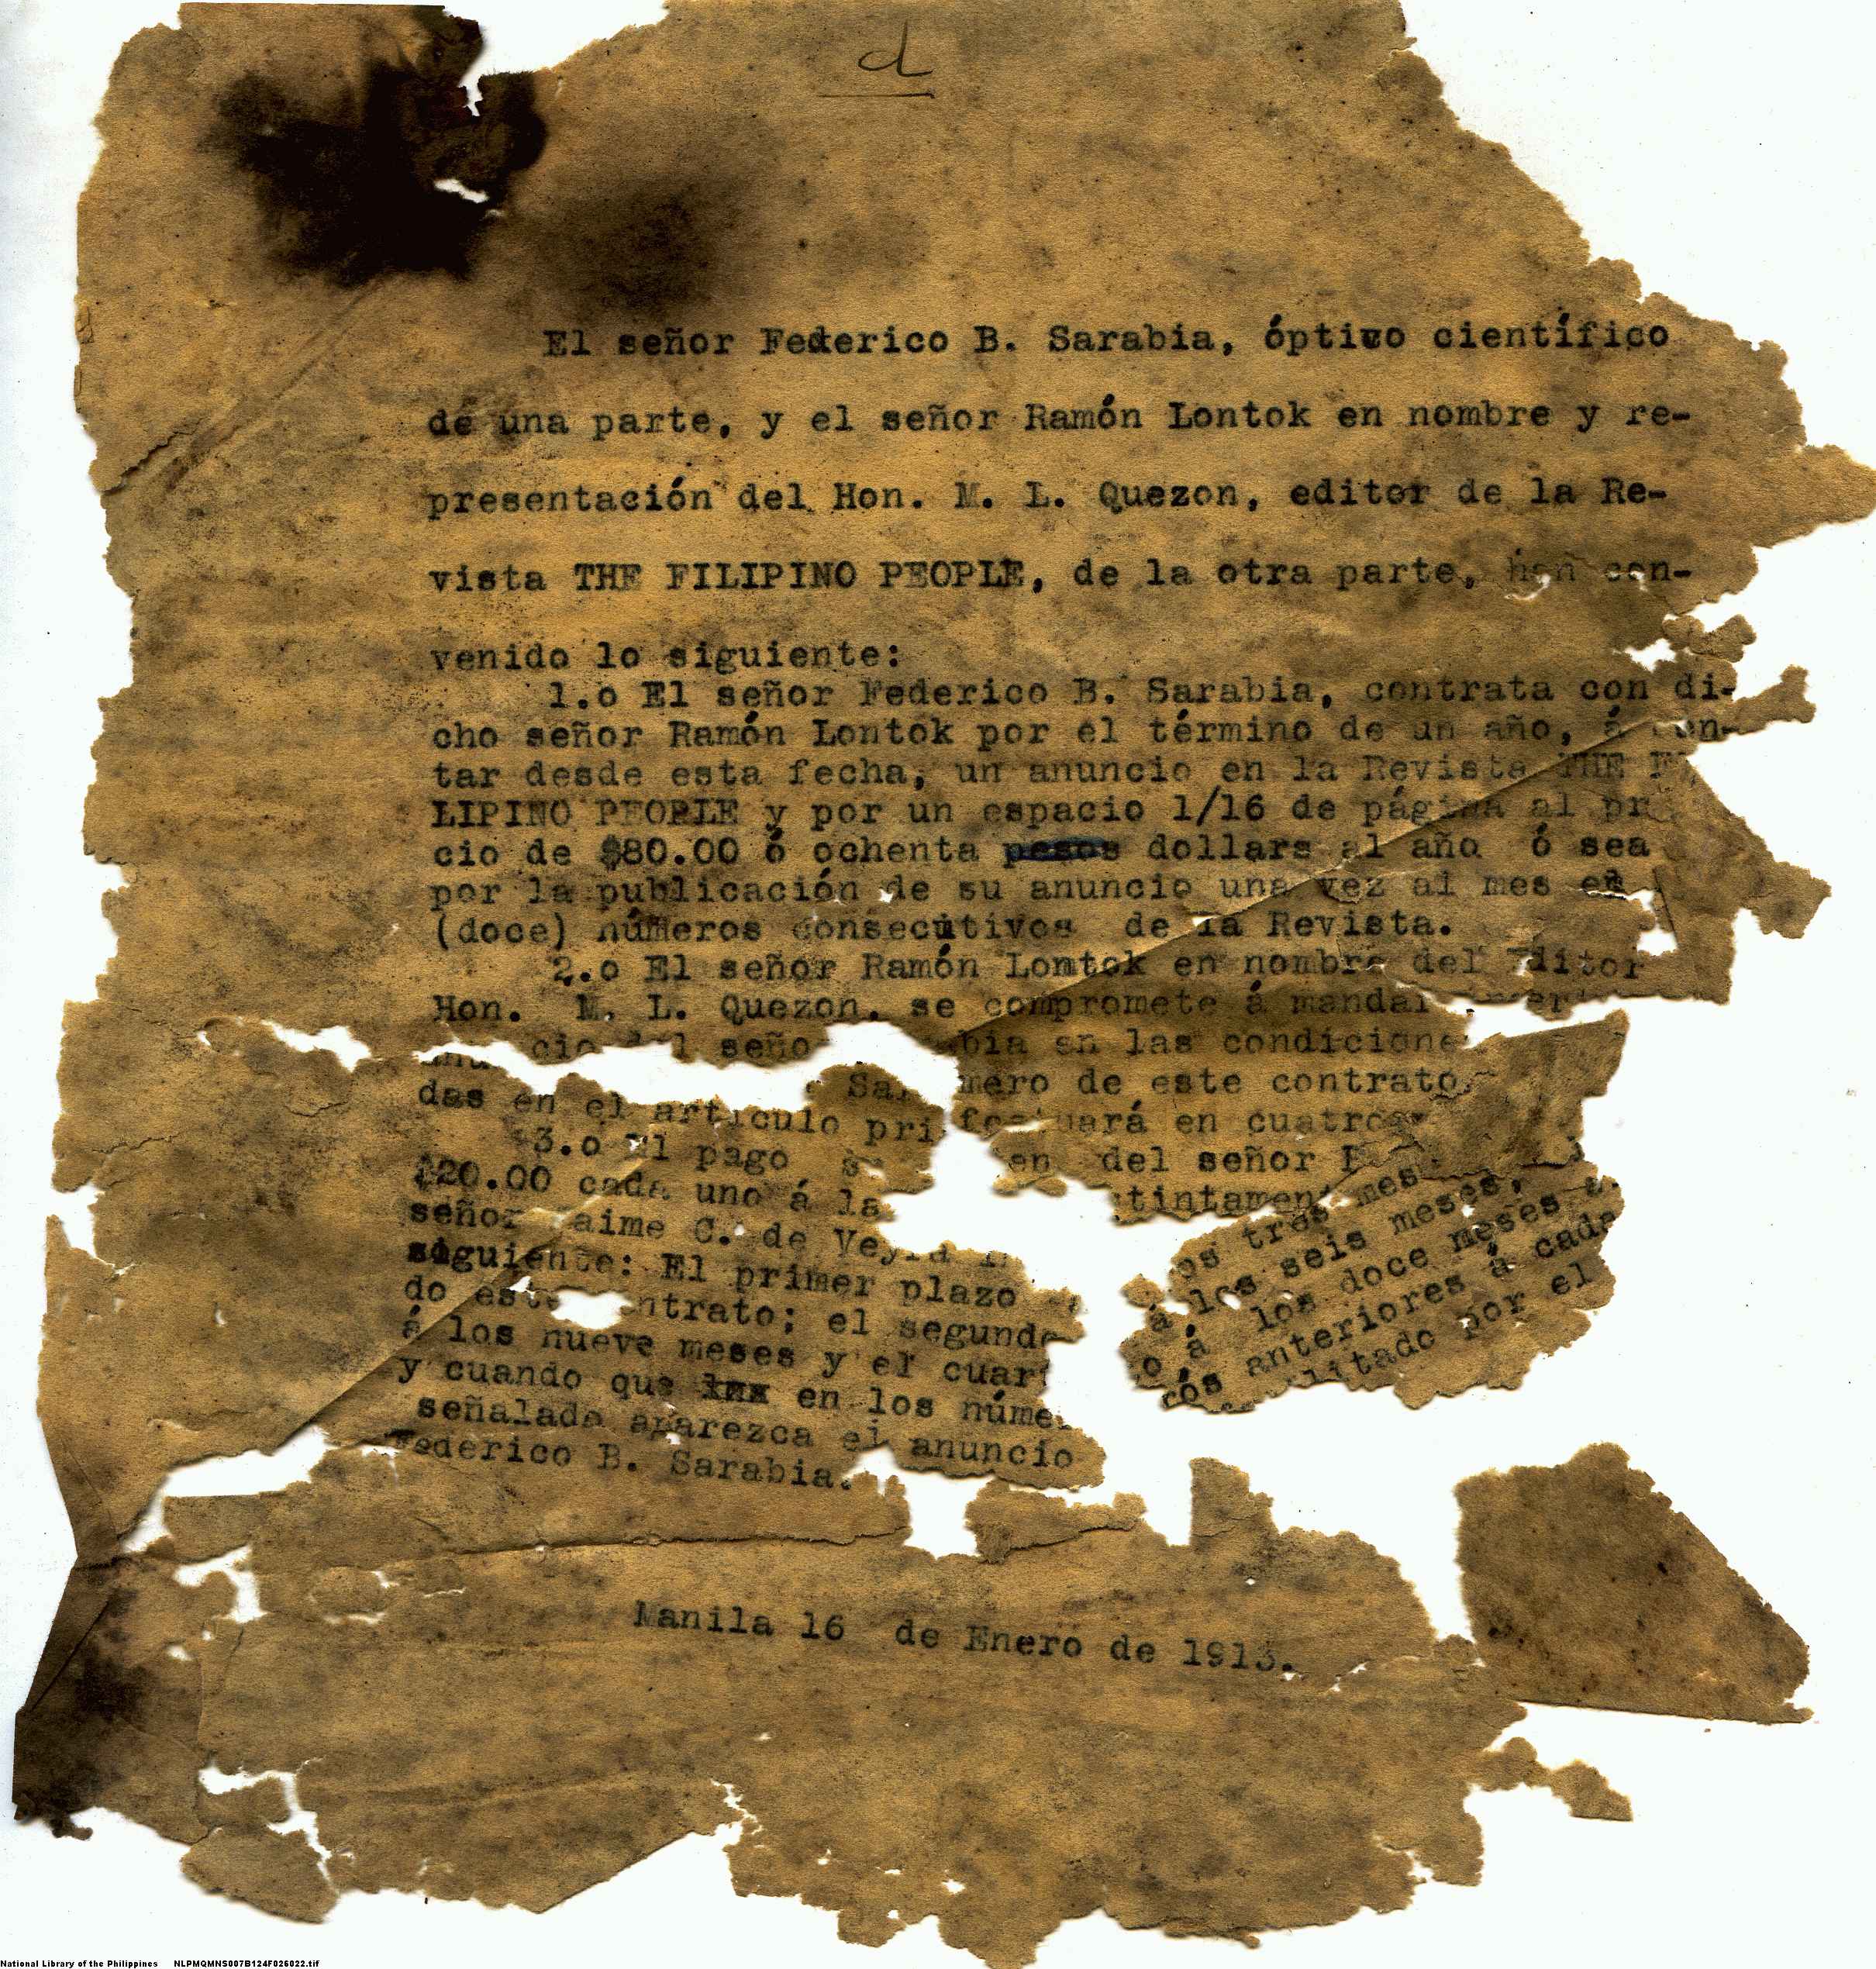 d
El señor Federico B. Sarabia, óptico científico
de una parte, y el señor Ramón Lontok en nombre y re-
presentación del Hon. M. L. Quezon, editor de la Re-
vista THE FILIPINO PEOPLE, de la otra parte, han con-
venido lo siguiente:
1.o El señor Federico B. Sarabia, contrata con di-
cho señor Ramón Lontok por el término de un año, á
tar desde esta fecha, un anuncio en la Revista THE
LIPINO PEOPLE y por un espacio 1/16 de página al pr
cio de $80.00 ó ochenta pesos dollars al año ó sea
por la publicación de su anuncio una vez al mes en
(doce) números consecutivos de la Revista.
2.o El señor Ramón Lomtok en nombre del Editor
Hon. M. L. Quezon, se compromete á mandar
cio seño bia en las condicione
das en el artículo pri mero de este contrato.
3.o El pago fectuará en cuatro
$20.00 cada uno á la en del señor
señor Jaime C. de Veyra tintamen
siguiente: El primer plazo os tres mes
do este ntrato; el segundo á los seis meses,
á los nueve meses y el cuart o á los doce meses
y cuando que en los núme rós anteriores á cada
señalada aparezca el anuncio litado por el
Federico B. Sarabia.
Manila 16 de Enero de 1913.
National Library of the Philippines NLPMQMNS007B124F026022.tif